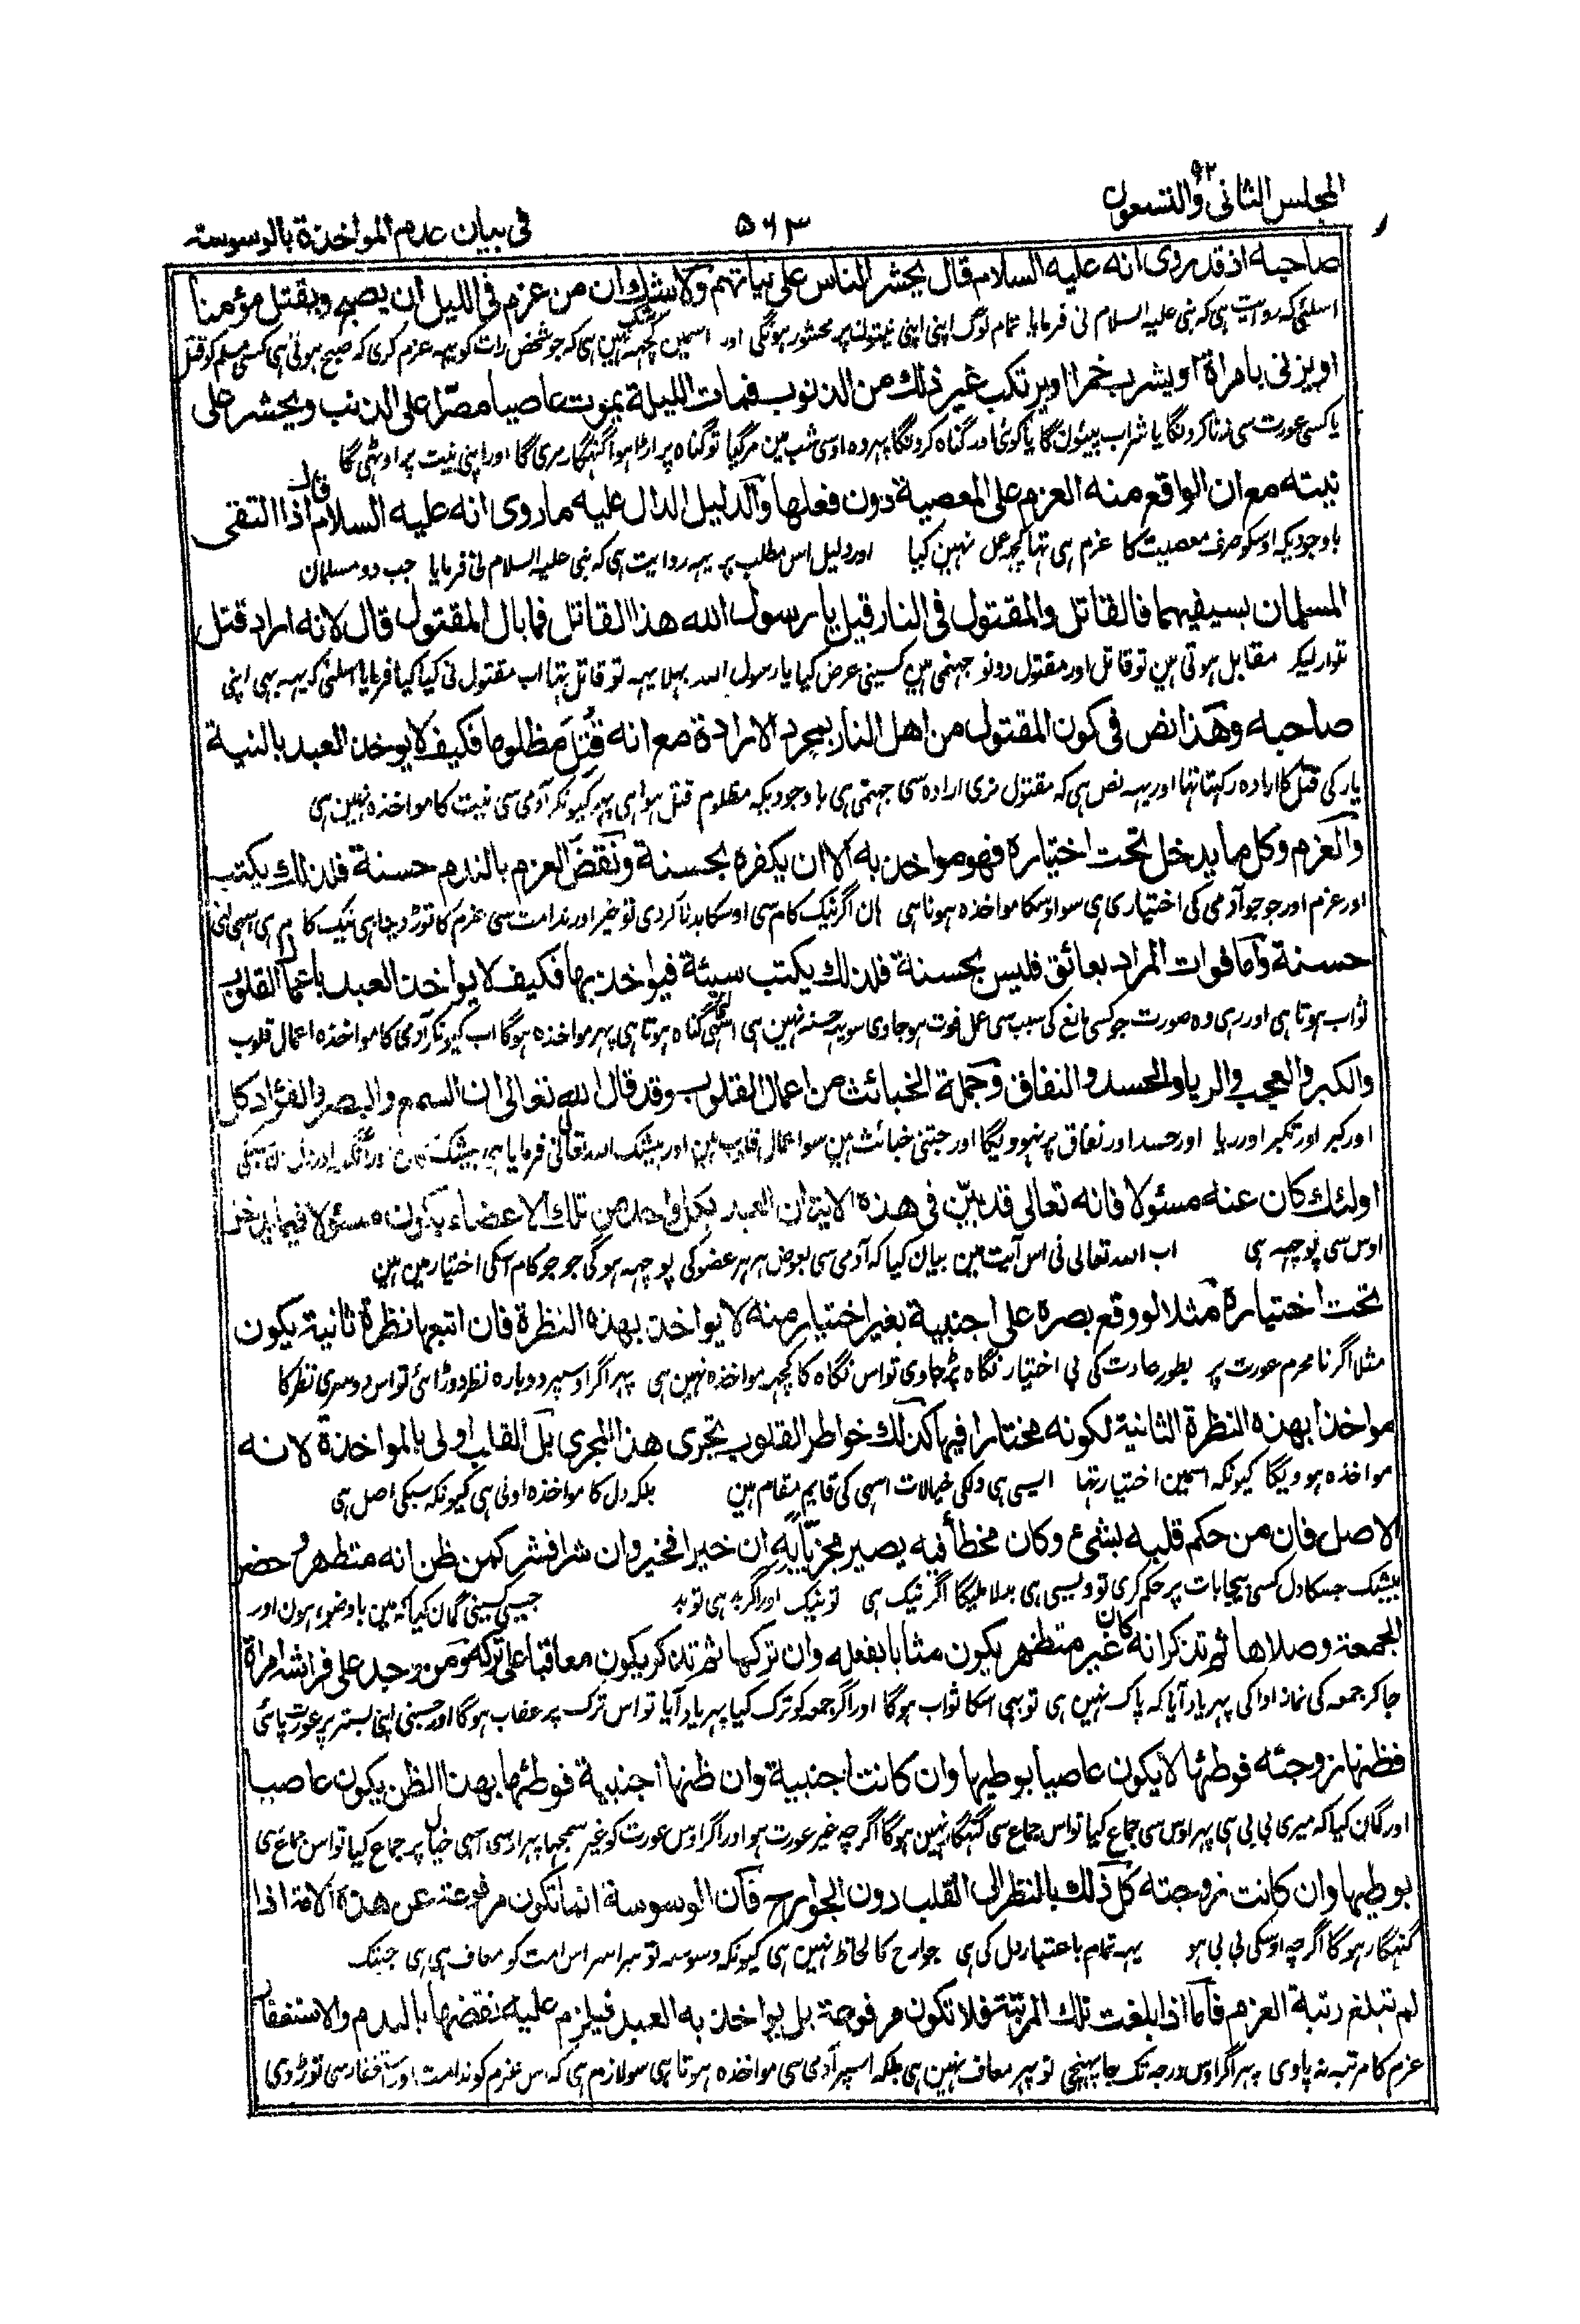 المجلس الثانی والتسعون
۹۲
۵۶۳
فی بیان عدم المواخذة بالوسوسته
صاحبه اذ قد روی انه علیه السلام قال یحشر الناس علی نیاتهم ولا شك وان من عزم فی اللیل ان یصبح ویقتل مؤمنا
اسلئی که روایت هی که نبی علیه السلام نی فرمایا تمام لوگ اپنی اپنی نیتون پر محشور هونگی اور اسمین کچهه شک نهین هی که جو شخص رات کو یهه عزم کری که صبح هوئی هی کسی مسلم کو قتل
او یزنی بامراة او یشرب خمرا او یرتکب غیر ذلك من الذنوب فمات اللیلة یموت عاصیا مصرّا علی الذنب ویحشر علی
یا کسی عورت سی زنا کرونگا یا شراب پیئون گا یا کوئی اور گناه کرونگا پهر وه اوسی شب مین مرگیا تو گناه پر اڑا هوا گنهگار مری گا اور اپنی نیت پر اوٹهی گا
نیته مع ان الواقع منه العزم علی المعصیة دون فعلها والدلیل الدال علیه ما روی انه علیه السلام قال اذا التقی
باوجودیکه اوسکو صرف معصیت کا عزم هی تها کچهه عمل نهین کیا اور دلیل اس مطلب پر یهه روایت هی که نبی علیه السلام نی فرمایا جب دو مسلمان
المسلمان بسیفیهما فالقاتل والمقتول فی النار قیل یا رسول الله هذا القاتل فما بال المقتول قال لانه اراد قتل
تلوار لیکر مقابل هوتی هین تو قاتل اور مقتول دونو جهنمی هین کسینی عرض کیا یا رسول الله بهلا یهه تو قاتل تها اب مقتول نی کیا کیا فرمایا اسلئی که یهه بهی اپنی
صاحبه وهذا نص فی کون المقتول من اهل النار بمجرد الارادة مع انه قُتِلَ مظلوما فکیف لا یوخذ العبد بالنیة
یار کی قتل کا اراده رکهتا تها اور یهه نص هی که مقتول نری اراده سی جهنمی هی باوجودیکه مظلوم قتل هوا هی پهر کیونکر آدمی سی نیت کا مواخذه نهین هی
والعزم وکل ما یدخل تحت اختیاره فهو مواخذ به الا ان یکفره بحسنة ونقض العزم بالندم حسنة فلذلك یکتب
اور عزم اور جو جو آدمی کی اختیاری هی سو اوسکا مواخذه هونا هی هان اگر نیک کام سی اوسکا بدلا کردی تو خیر اور ندامت سی عزم کا توڑ دینا بهی نیک کام هی اسی لئی
حسنة واما فوات المراد بعائق فلیس بحسنة فلذلك یکتب سیئة فیواخذ بها فکیف لا یواخذ العبد باعمال القلوب
ثواب هوتا هی اور رهی وه صورت جو کسی مانع کی سبب سی عمل فوت هوجاوی سو یهه حسنه نهین هی اسلئی گناه هوتا هی پهر مواخذه هوگا اب کیونکر آدمی کا مواخذه اعمال قلوب
والکبر والعجب والریا والحسد والنفاق وجملة الخبائث من اعمال القلوب وقد قال الله تعالی ان السمع والبصر والفؤاد کل
اور کبر اور تکبر اور ریا اور حسد اور نفاق پر نهوویگا اور جتنی خبائث هین سو اعمال قلوب هین اور بیشک الله تعالی فرمایا هی بیشک کان اور آنکهه اور دل
اولئك کان عنه مسئولا فانه تعالی قد بیّن فی هذه الایة ان العبد بکل واحد من تلك الاعضاء یکون مسئولا فیما یدخل
اوس سی پوچهه هی اب الله تعالی نی اس آیت مین بیان کیا که آدمی سی بعوض هر هر عضو کی پوچهه هوگی جو جو کام اسکی اختیار مین هین
تحت اختیاره مثلا لو وقع بصره علی اجنبیة بغیر اختیار منه لا یواخذ بهذه النظرة فان اتبعها نظرة ثانیة یکون
مثلا اگر نامحرم عورت پر بطور عادت کی بی اختیار نگاه پڑجاوی تو اس نگاه کا کچهه مواخذه نهین هی پهر اگر اوسپر دوباره نظر دوڑائی تو اس دوسری نظر کا
مواخذا بهذه النظرة الثانیة لکونه مختارا فیها کذلك خواطر القلوب تجری هذا المجری بل القلب اولی بالمواخذة لانه
مواخذه هوویگا کیونکه اسمین اختیار تها ایسی هی دلکی خیالات اسی کی قایم مقام هین بلکه دل کا مواخذه اولی هی کیونکه سبکی اصل هی
الاصل فان من حکم قلبه بشیء وکان مخطأ فیه یصیر مجزیّا به ان خیرا فخیر وان شرا فشر کمن ظن انه متطهر وحضر
بیشک جسکا دل کسی بیجا بات پر حکم کری تو ویسی هی بدلا ملیگا اگر نیک هی تو نیک اور اگر بد هی تو بد جیسی کسینی گمان کیا که مین باوضوء هون اور
الجمعة وصلاها ثم تذکر انه کان غیر متطهر یکون مثابا بفعله وان ترکها ثم تذکر یکون معاقبا علی ترکه ومن وجد علی فراشه امراة
جاکر جمعه کی نماز ادا کی پهر یاد آیا که پاک نهین هی تو بهی اسکا ثواب هوگا اور اگر جمعه کو ترک کیا پهر یاد آیا تو اس ترک پر عقاب هوگا اور جسنی اپنی بستر پر عورت پائی
فظنها زوجته فوطئها لا یکون عاصیا بوطیها وان کانت اجنبیة وان ظنها اجنبیة فوطئها بهذا الظن یکون عاصیا
اور گمان کیا که میری بی بی هی پهر اوس سی جماع کیا تو اس جماع سی گنهگار نهین هوگا اگرچه غیر عورت هو اور اگر اوس عورت کو غیر سمجها پهر اوسی اسی خیال پر جماع کیا تو اس جماع هی
بوطیها وان کانت زوجته کل ذلك بالنظر الی القلب دون الجوارح فان الوسوسة انما تکون مرفوعة عن هذه الامة اذا
گنهگار هوگا اگرچه اوسکی بی بی هو یهه تمام باعتبار دل کی هی جوارح کا لحاظ نهین هی کیونکه وسوسه تو سراسر اس امت کو معاف هی هی جبتک
لم تبلغ رتبة العزم فاما اذا بلغت تلك المرتبة فلا تکون مرفوعة بل یواخذ به العبد فیلزم علیه نقضها بالندم والاستغفار
عزم کا مرتبه نه پاوی پهر اگر اوس درجه تک جا پهنچی تو پهر معاف نهین هی بلکه اسپر آدمی سی مواخذه هوتا هی سو لازم هی که اس عزم کو ندامت اور استغفار سی توڑ دی